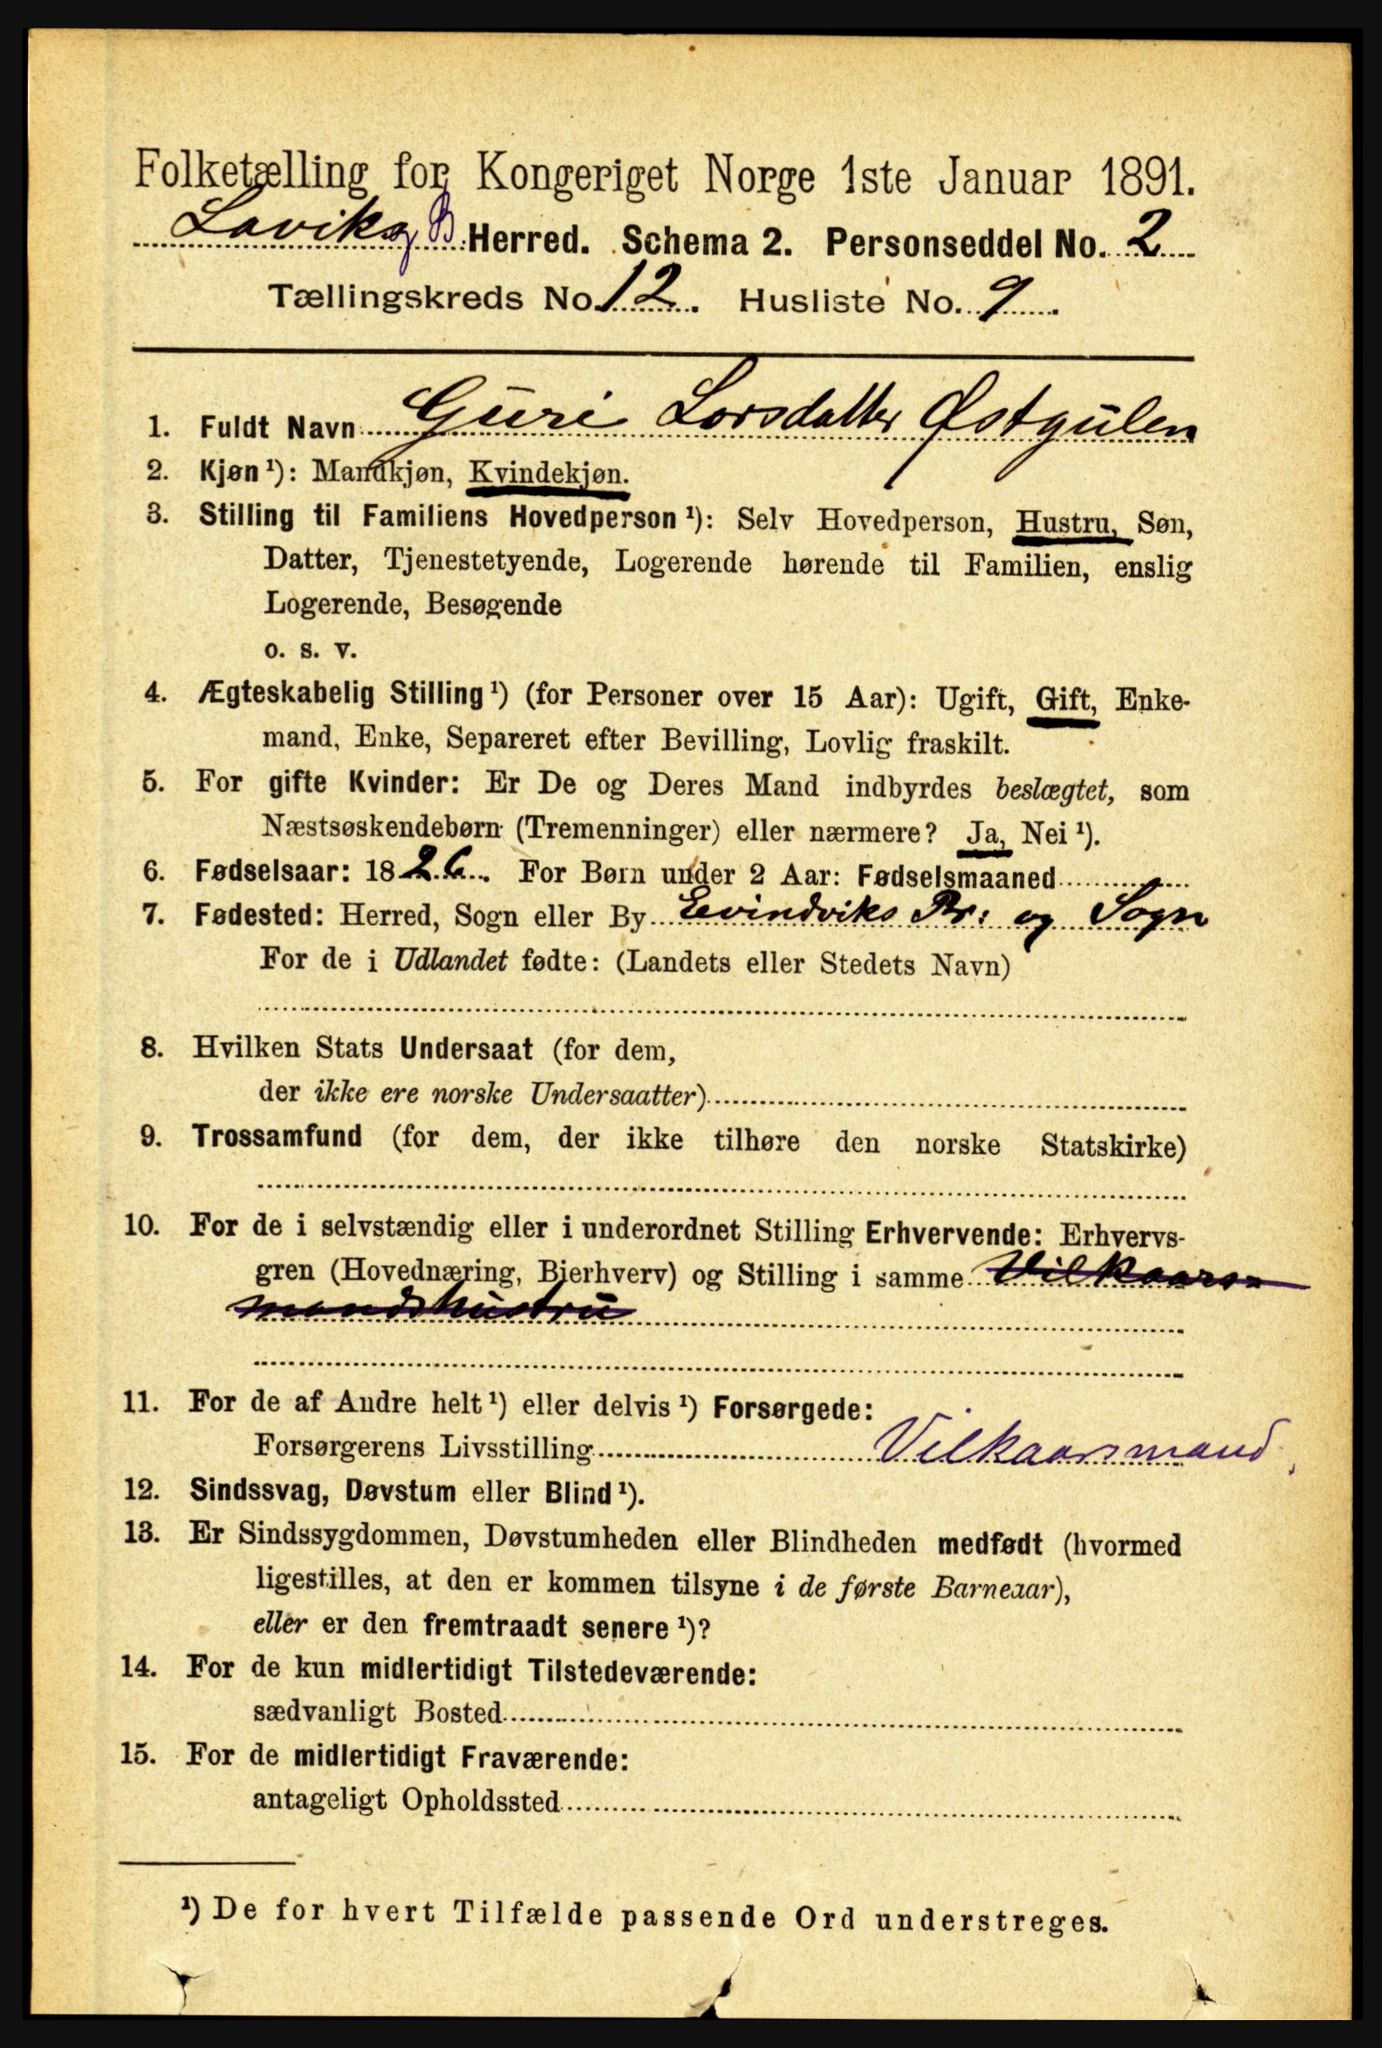 Folketælling for Kongeriget Norge 1ste Januar 1891.
Lavik og B. Herred. Schema 2. Personseddel No. 2
Tællingskreds No. 12. Husliste No. 9.
1. Fuldt Navn Guri Larsdatter Østgulen
2. Kjøn ¹): Mandkjøn, Kvindekjøn.
3. Stilling til Familiens Hovedperson ¹): Selv Hovedperson, Hustru, Søn,
Datter, Tjenestetyende, Logerende hørende til Familien, enslig
Logerende, Besøgende
o. s. v.
4. Ægteskabelig Stilling ¹) (for Personer over 15 Aar): Ugift, Gift, Enke-
mand, Enke, Separeret efter Bevilling, Lovlig fraskilt.
5. For gifte Kvinder: Er De og Deres Mand indbyrdes beslægtet, som
Næstsøskendebørn (Tremenninger) eller nærmere? Ja, Nei ¹).
6. Fødselsaar: 1826. For Børn under 2 Aar: Fødselsmaaned
7. Fødested: Herred, Sogn eller By Evindviks Pr: og Sogn
For de i Udlandet fødte: (Landets eller Stedets Navn)
8. Hvilken Stats Undersaat (for dem,
der ikke ere norske Undersaatter)
9. Trossamfund (for dem, der ikke tilhøre den norske Statskirke)
10. For de i selvstændig eller i underordnet Stilling Erhvervende: Erhvervs-
gren (Hovednæring, Bierhverv) og Stilling i samme Vilkaars-
mandshustru
11. For de af Andre helt ¹) eller delvis ¹) Forsørgede:
Forsørgerens Livsstilling Vilkaarsmand.
12. Sindssvag, Døvstum eller Blind ¹).
13. Er Sindssygdommen, Døvstumheden eller Blindheden medfødt (hvormed
ligestilles, at den er kommen tilsyne i de første Barneaar),
eller er den fremtraadt senere ¹)?
14. For de kun midlertidigt Tilstedeværende:
sædvanligt Bosted
15. For de midlertidigt Fraværende:
antageligt Opholdssted
¹) De for hvert Tilfælde passende Ord understreges.